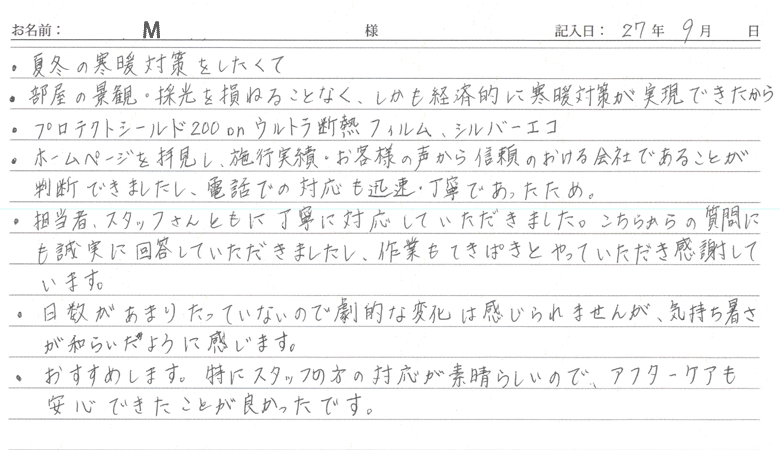 お名前： M 様 記入日： 27年 9月 日
・夏冬の寒暖対策をしたくて
・部屋の景観・採光を損ねることなく、しかも経済的に寒暖対策が実現できたから
・プロテクトシールド200 on ウルトラ断熱フィルム、シルバーエコ
・ホームページを拝見し、施行実績・お客様の声から信頼のおける会社であることが
判断できましたし、電話での対応も迅速・丁寧であったため。
・担当者、スタッフさんともに丁寧に対応していただきました。こちらからの質問に
も誠実に回答していただきましたし、作業もてきぱきとやっていただき感謝して
います。
・日数があまりたっていないので劇的な変化は感じられませんが、気持ち暑さ
が和らいだように感じます。
・おすすめします。特にスタッフの方の対応が素晴らしいので、アフターケアも
安心できたことが良かったです。